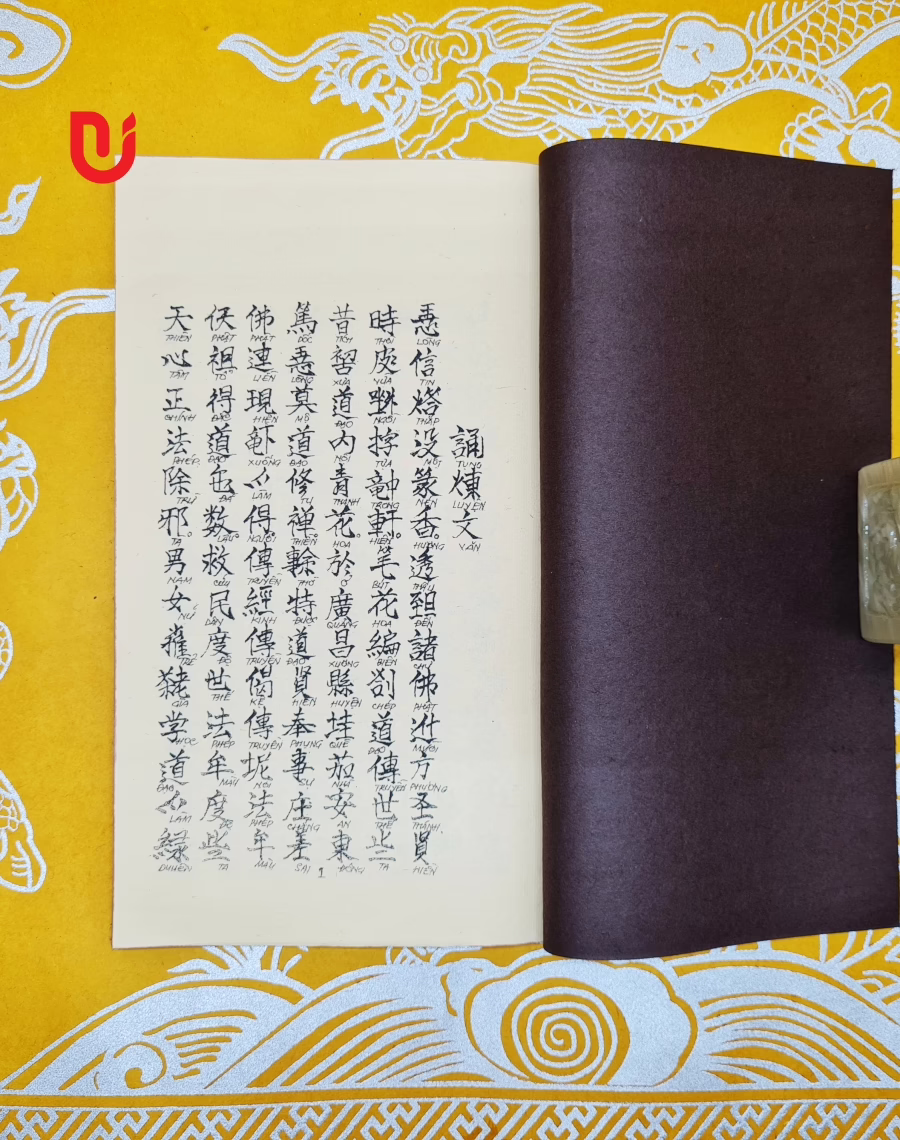 誦煉文
TỤNG LUYỆN VĂN
𢚸信熖没篆香。透𦤾諸佛𨑮方圣賢
LÒNG TIN THẮP MỘT NÉN HƯƠNG THẤU ĐẾN CHƯ PHẬT MƯỜI PHƯƠNG THÁNH HIỀN
時皮𡎢拧𥪝軒。笔花編劄道傳世些
THỜI VỪA NGỒI TỰA TRONG HIÊN BÚT HOA BIÊN CHÉP ĐẠO TRUYỀN THẾ TA
昔𡳰道内青花。於廣昌縣圭茄安東
TÍCH XƯA ĐẠO NỘI THANH HOA Ở QUẢNG XƯƠNG HUYỆN QUÊ NHÀ AN ĐÔNG
篤𢚸募道修禅。𠄜特道賢奉事庄差
DỐC LÒNG MỘ ĐẠO TU THIỀN THỜ ĐƯỢC ĐẠO HIỀN PHỤNG SỰ CHẲNG SAI
佛連現𨑜𫜵得。傳經傳偈傳坭法牟
PHẬT LIỀN HIỆN XUỐNG LÀM NGƯỜI TRUYỀN KINH TRUYỀN KỆ TRUYỀN NƠI PHÉP MẦU
伕祖得道㐌数。救民度世法牟度些
PHẬT TỔ ĐẮC ĐẠO ĐÃ LÂU CỨU DÂN ĐỘ THẾ PHÉP MẦU ĐỘ TA
天心正法除邪。男女𨿈𤠲学道𫜵緣
THIÊN TÂM CHÍNH PHÉP TRỪ TÀ NAM NỮ TRẺ GIÀ HỌC ĐẠO LÀM DUYÊN
1